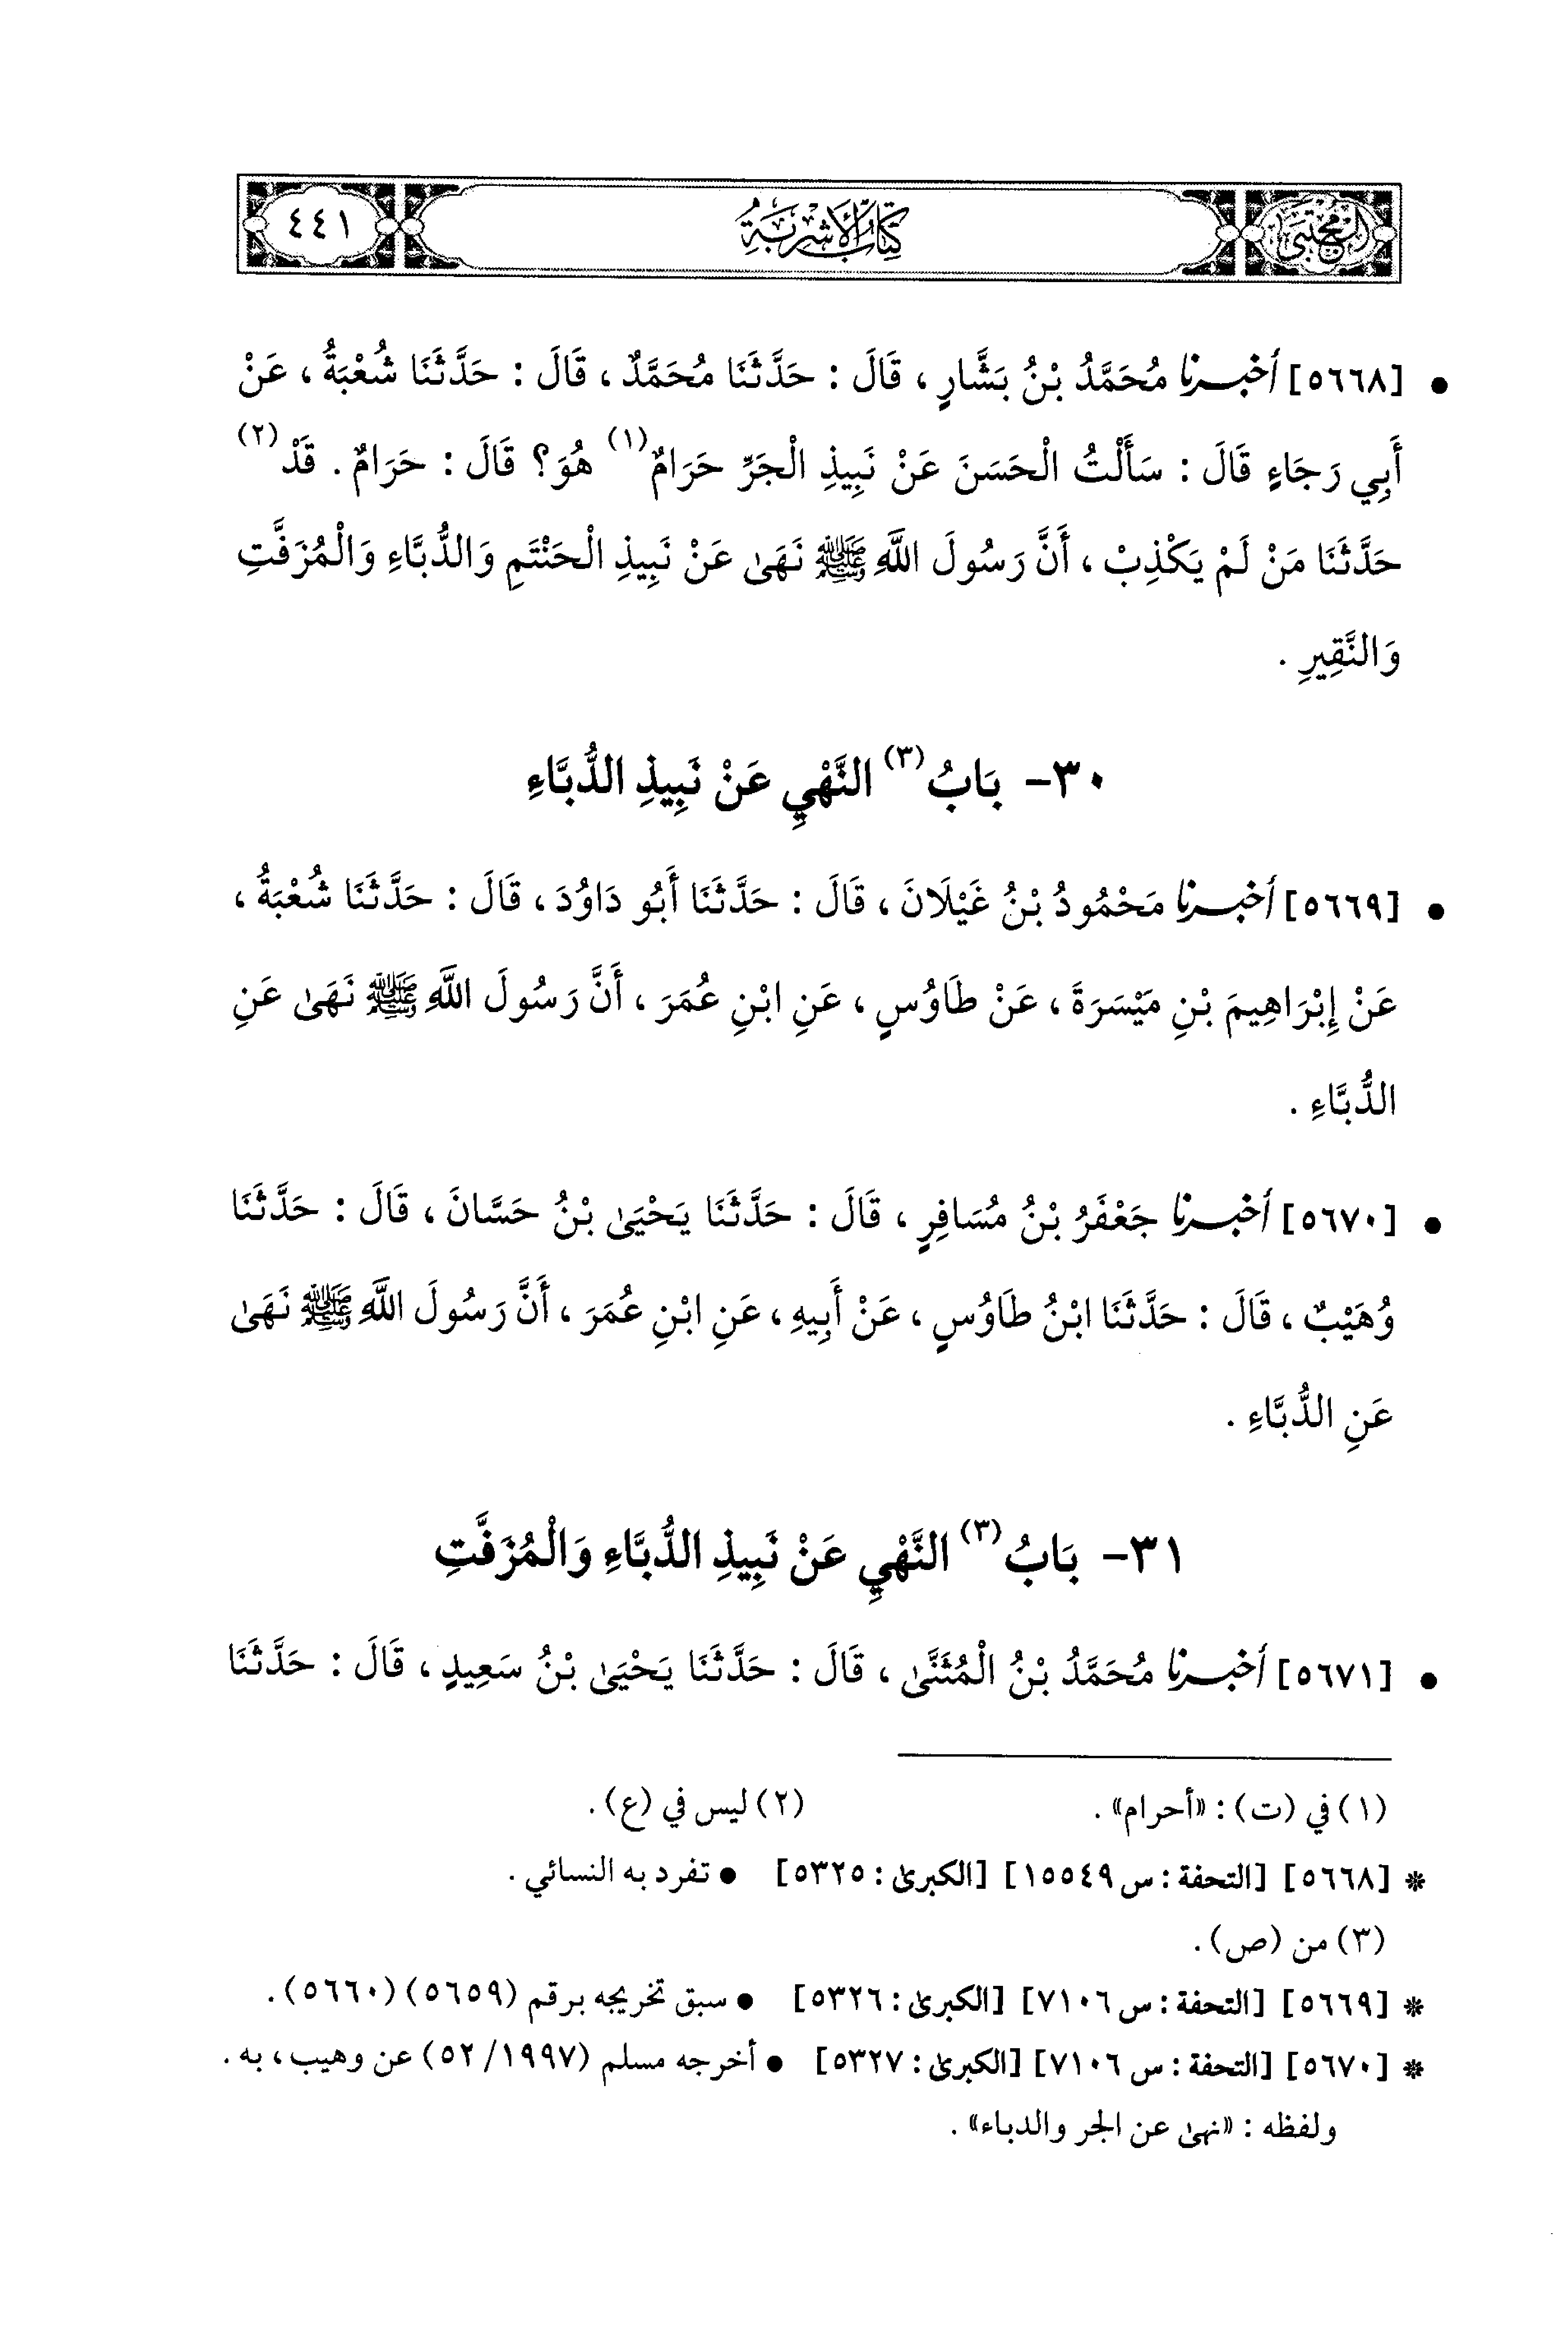 المجتبى كتاب الأشربة ٤٤١
• [٥٦٦٨] أخبرنا مُحَمَّدُ بْنُ بَشَّارٍ ، قَالَ : حَدَّثَنَا مُحَمَّدٌ ، قَالَ : حَدَّثَنَا شُعْبَةُ ، عَنْ
أَبِي رَجَاءٍ قَالَ : سَأَلْتُ الْحَسَنَ عَنْ نَبِيذِ الْجَرِّ حَرَامٌ (١) هُوَ؟ قَالَ : حَرَامٌ . قَدْ (٢)
حَدَّثَنَا مَنْ لَمْ يَكْذِبْ ، أَنَّ رَسُولَ اللَّهِ ﷺ نَهَىٰ عَنْ نَبِيذِ الْحَنْتَمِ وَالدُّبَّاءِ وَالْمُزَفَّتِ
وَالنَّقِيرِ .
٣٠- بَابُ (٣) النَّهْيِ عَنْ نَبِيذِ الدُّبَّاءِ
• [٥٦٦٩] أخبرنا مَحْمُودُ بْنُ غَيْلَانَ ، قَالَ : حَدَّثَنَا أَبُو دَاوُدَ ، قَالَ : حَدَّثَنَا شُعْبَةُ ،
عَنْ إِبْرَاهِيمَ بْنِ مَيْسَرَةَ ، عَنْ طَاوُسٍ ، عَنِ ابْنِ عُمَرَ ، أَنَّ رَسُولَ اللَّهِ ﷺ نَهَىٰ عَنِ
الدُّبَّاءِ .
• [٥٦٧٠] أخبرنا جَعْفَرُ بْنُ مُسَافِرٍ ، قَالَ : حَدَّثَنَا يَحْيَىٰ بْنُ حَسَّانَ ، قَالَ : حَدَّثَنَا
وُهَيْبٌ ، قَالَ : حَدَّثَنَا ابْنُ طَاوُسٍ ، عَنْ أَبِيهِ ، عَنِ ابْنِ عُمَرَ ، أَنَّ رَسُولَ اللَّهِ ﷺ نَهَىٰ
عَنِ الدُّبَّاءِ .
٣١- بَابُ (٣) النَّهْيِ عَنْ نَبِيذِ الدُّبَّاءِ وَالْمُزَفَّتِ
• [٥٦٧١] أخبرنا مُحَمَّدُ بْنُ الْمُثَنَّىٰ ، قَالَ : حَدَّثَنَا يَحْيَىٰ بْنُ سَعِيدٍ ، قَالَ : حَدَّثَنَا
(١) في (ت) : «أحرام» . (٢) ليس في (ع) .
* [٥٦٦٨] [التحفة : س ١٥٥٤٩] [الكبرىٰ : ٥٣٢٥] • تفرد به النسائي .
(٣) من (ص) .
* [٥٦٦٩] [التحفة : س ٧١٠٦] [الكبرىٰ : ٥٣٢٦] • سبق تخريجه برقم (٥٦٥٩) (٥٦٦٠) .
* [٥٦٧٠] [التحفة : س ٧١٠٦] [الكبرىٰ : ٥٣٢٧] • أخرجه مسلم (١٩٩٧/ ٥٢) عن وهيب ، به .
ولفظه : «نهىٰ عن الجر والدباء» .